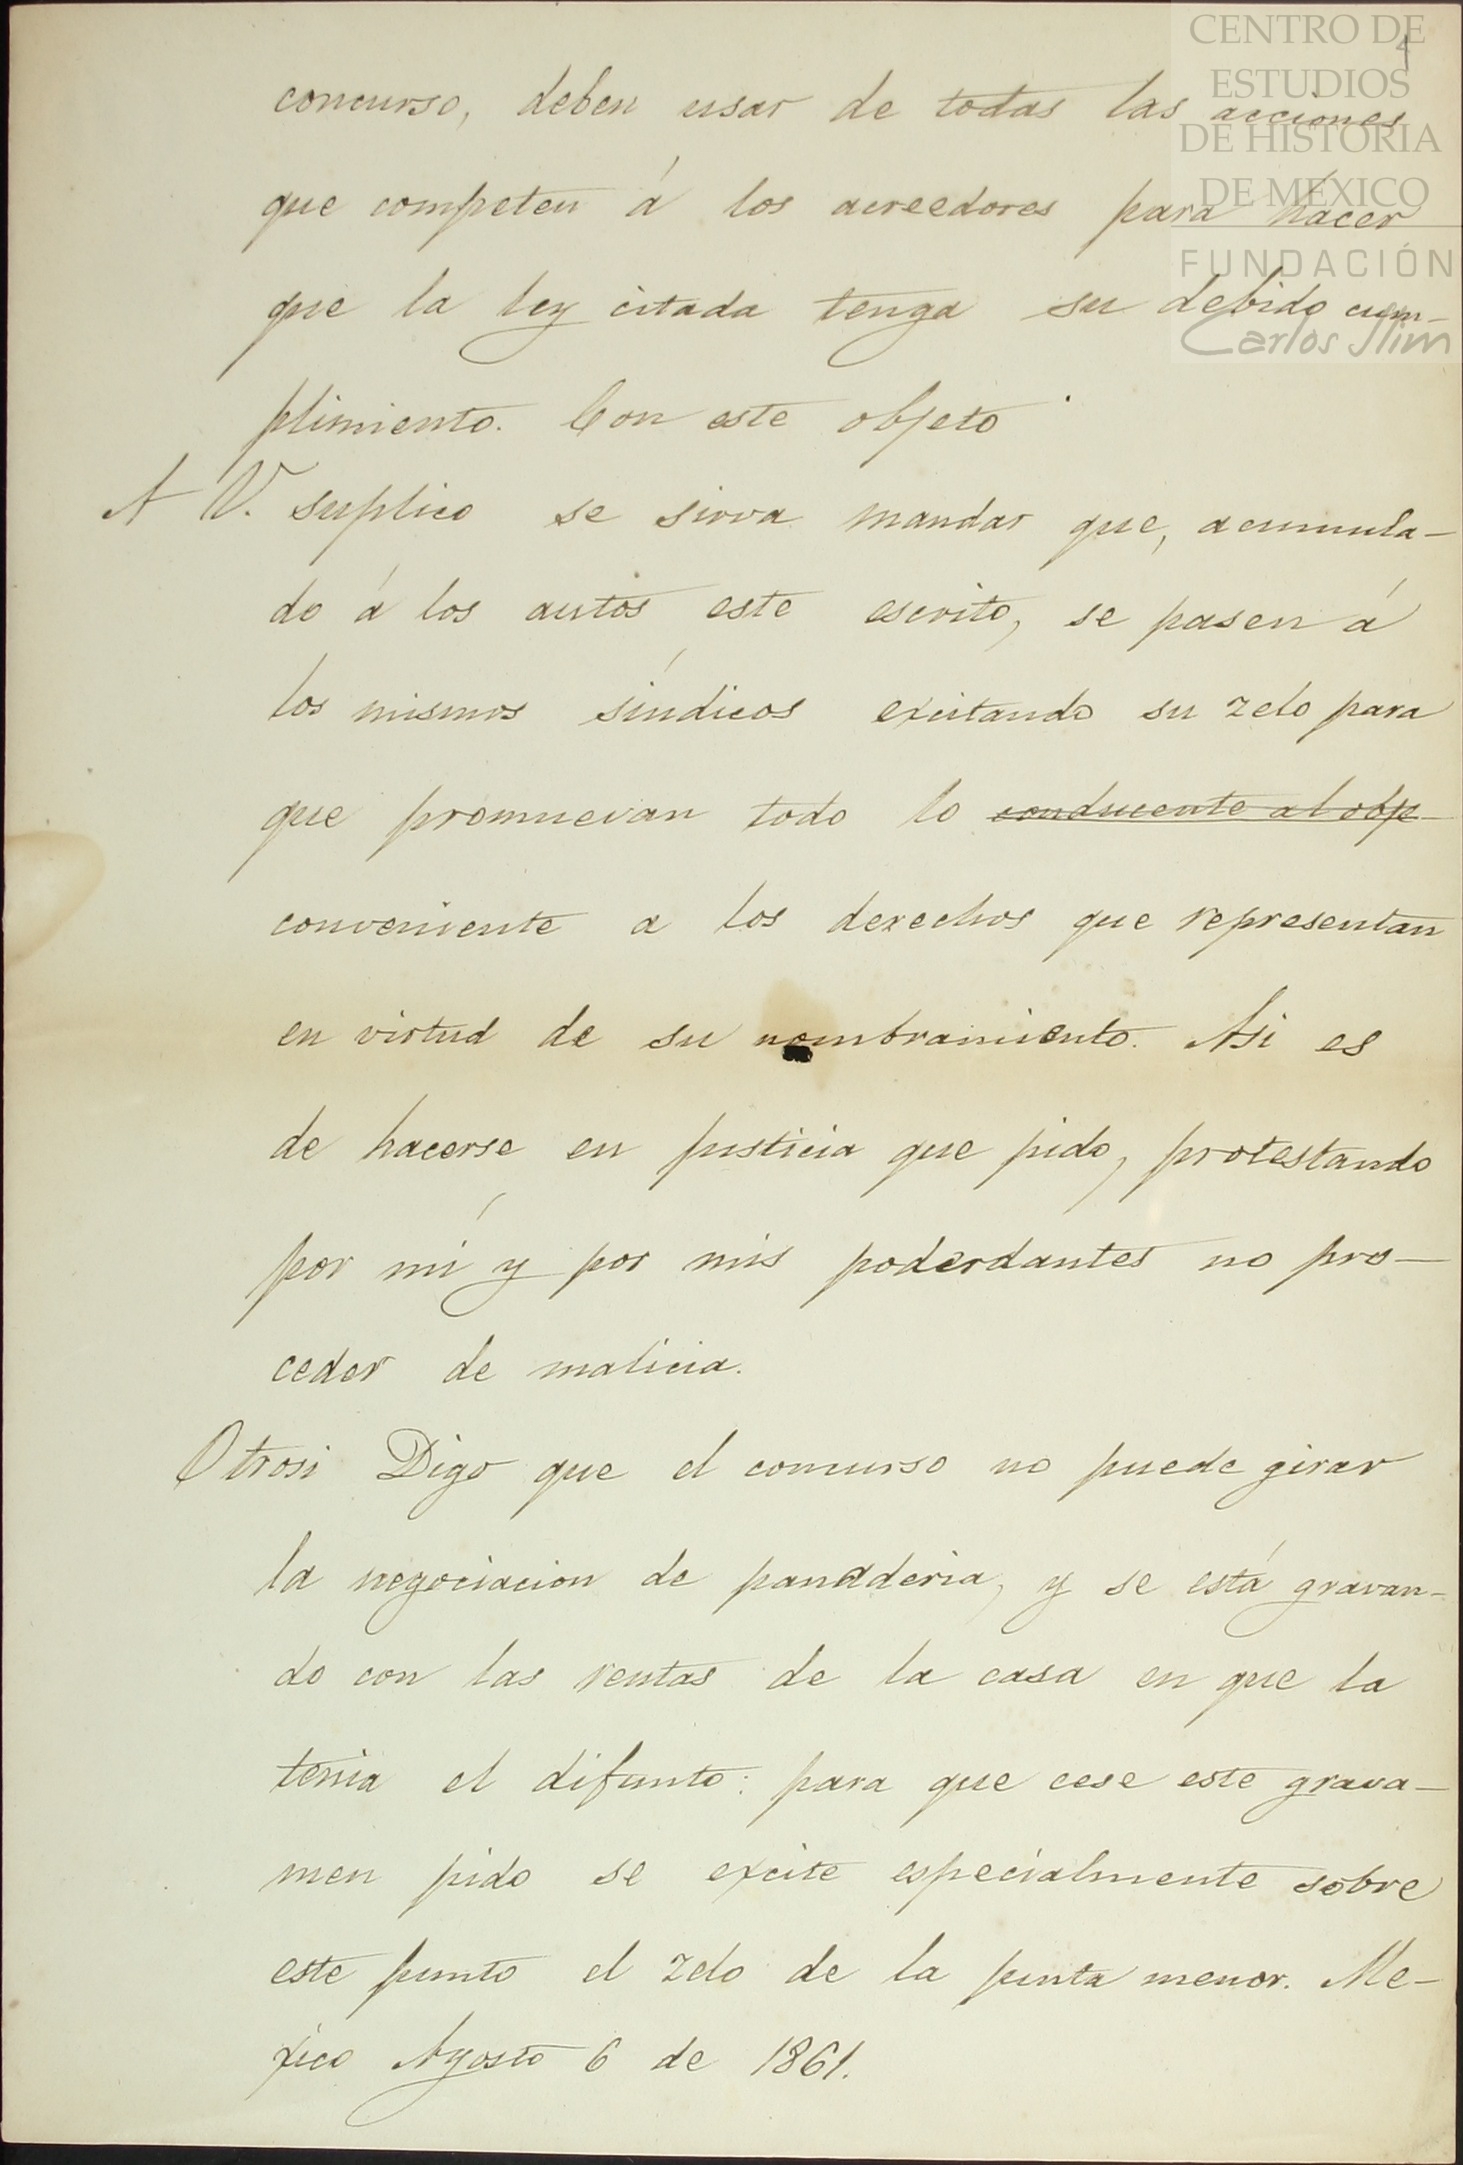 CENTRO DE
ESTUDIOS
DE HISTORIA
DE MÉXICO
FUNDACIÓN
Carlos Slim
4
concurso, deben usar de todas las acciones
que competen á los acreedores para hacer
que la ley citada tenga su debido cum-
plimiento. Con este objeto
A V. suplico se sirva mandar que, acumula-
do á los autos este escrito, se pasen á
los mismos síndicos exitando su zelo para
que promuevan todo lo conducente al obje
conveniente a los derechos que representan
en virtud de su nombramiento. Asi es
de hacerse en justicia que pido, protestando
por mí y por mis poderdantes no pro-
ceder de malicia.
Otrosi Digo que el concurso no puede girar
la negociacion de panaderia, y se está gravan-
do con las rentas de la casa en que la
tenia el difunto: para que cese este grava-
men pido se excite especialmente sobre
este punto el zelo de la junta menor. Me-
xico Agosto 6 de 1861.